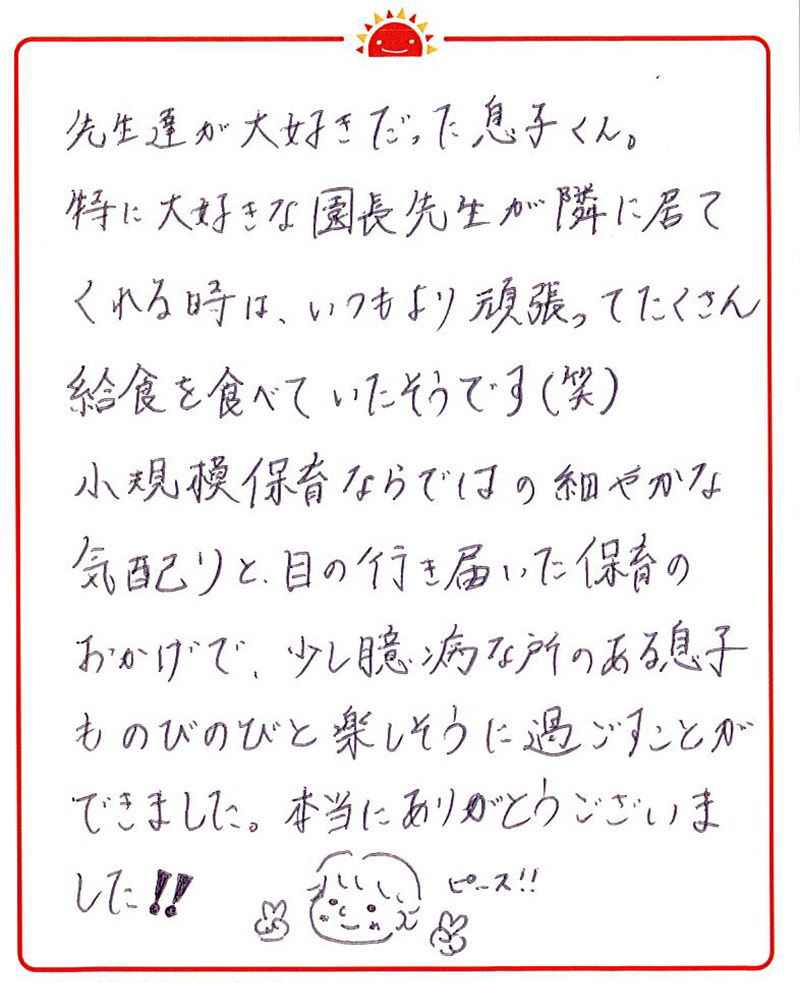 先生達が大好きだった息子くん。
特に大好きな園長先生が隣に居て
くれる時は、いつもより頑張ってたくさん
給食を食べていたそうです(笑)
小規模保育ならではの細やかな
気配りと、目の行き届いた保育の
おかげで、少し臆病な所のある息子
ものびのびと楽しそうに過ごすことが
できました。本当にありがとうございま
した!!
ピース!!